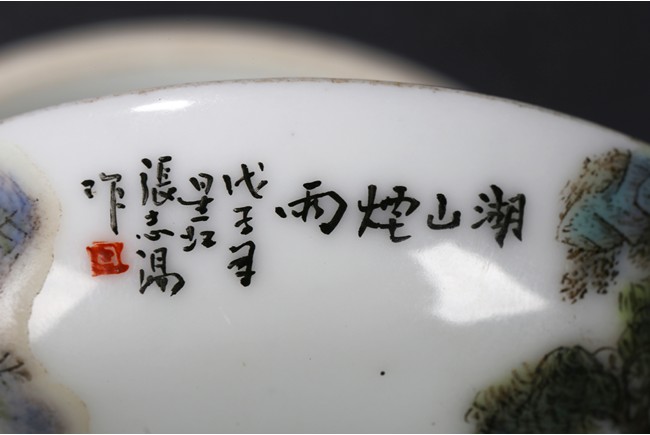 湖山煙雨
戊子年
星江
張志湯
作